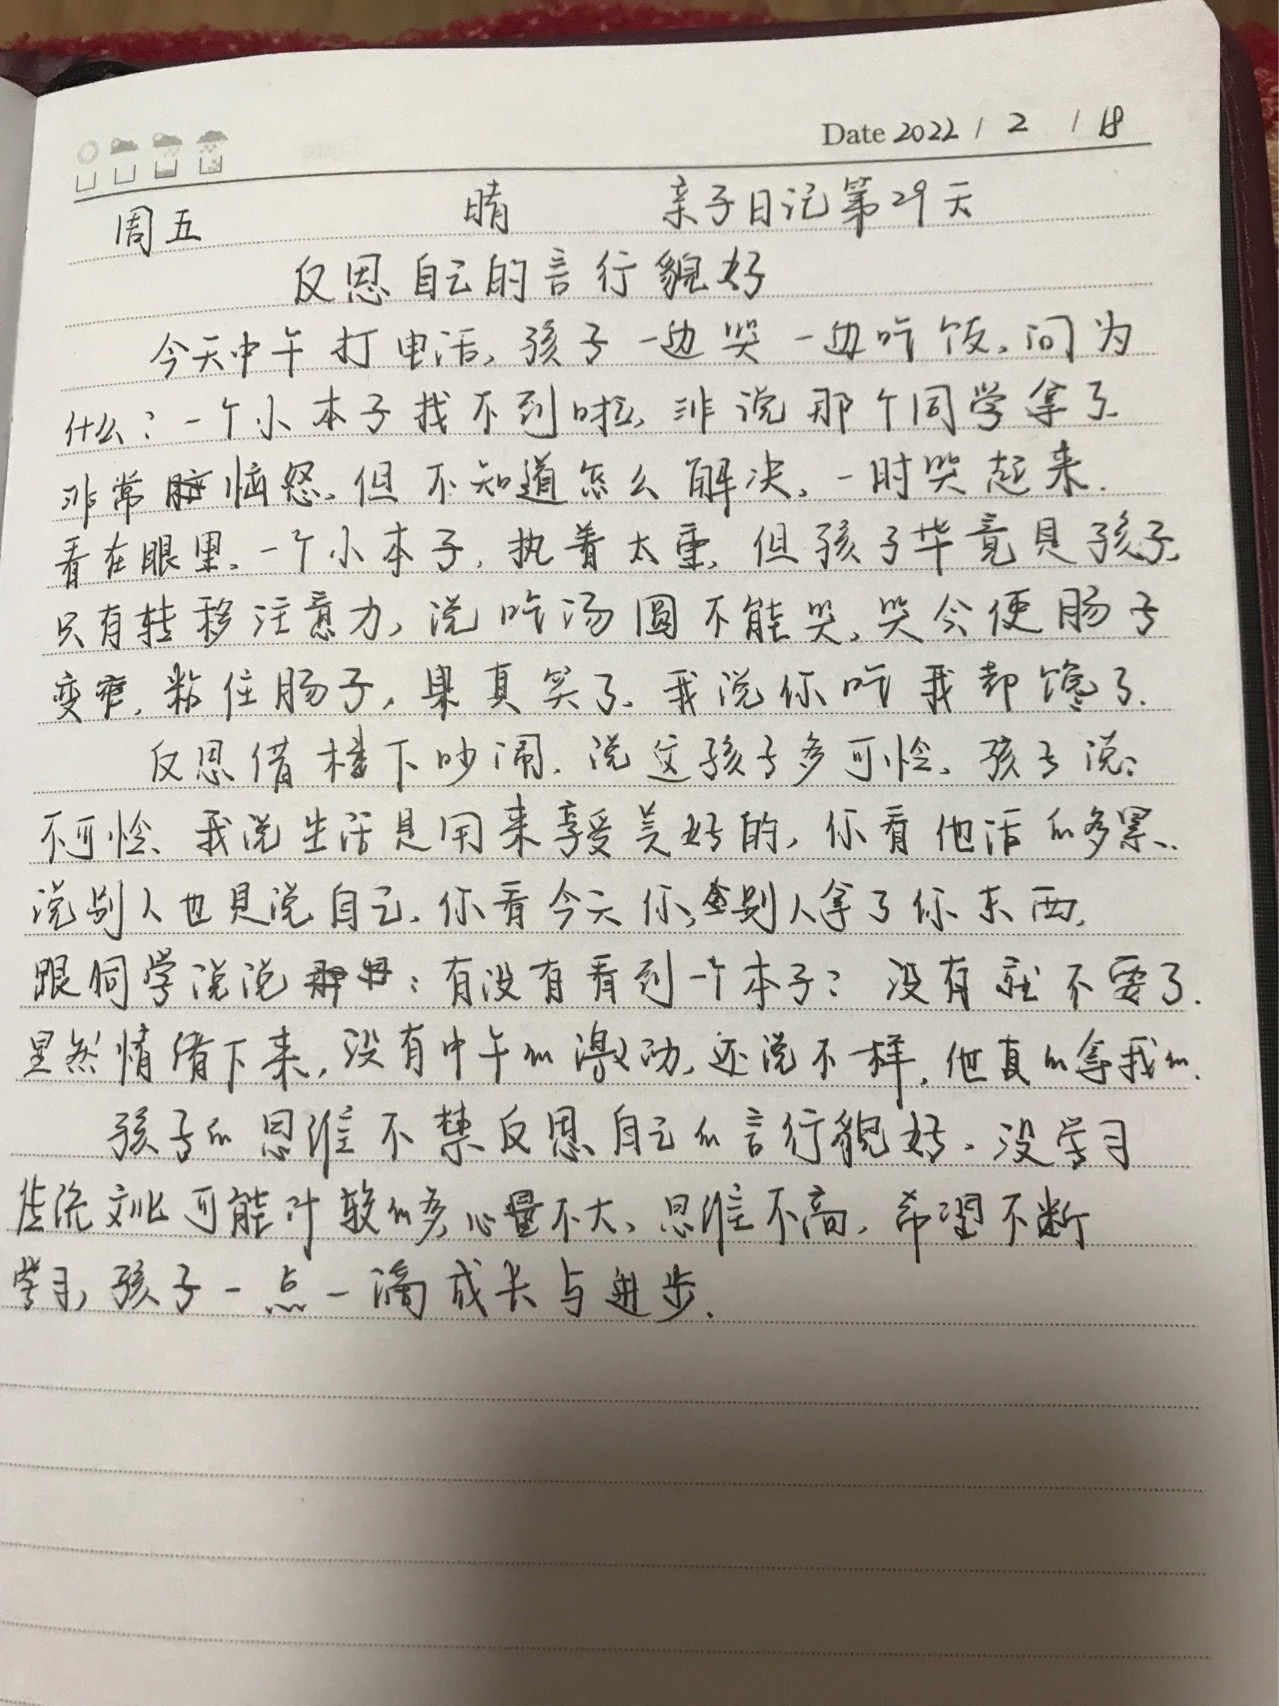 Date 2022 / 2 / 18
周五 晴 亲子日记第29天
反思自己的言行貌好
今天中午打电话,孩子一边哭一边吃饭,问为
什么?一个小本子找不到啦,非说那个同学拿了
非常恼怒,但不知道怎么解决,一时哭起来.
看在眼里,一个小本子,执着太重,但孩子毕竟是孩子,
只有转移注意力,说吃汤圆不能哭,哭会使肠子
变窄,粘住肠子,果真笑了.我说你吃我都馋了.
反思借楼下吵闹,说这孩子多可怜,孩子说:
不可怜、我说生活是用来享受美好的,你看他活的多累.
说别人也是说自己.你看今天你,别人拿了你东西,
跟同学说说:有没有看到一个本子?没有就不要了.
虽然情绪下来,没有中午的激动,还说不一样,他真的拿我的.
孩子的思维不禁反思自己的言行貌好.没学习
传统文化可能计较的多,心量不大,思维不高,希望不断
学习,孩子一点一滴成长与进步.